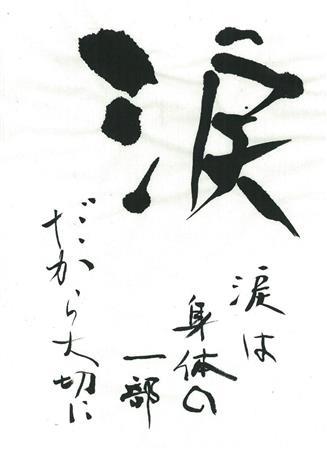 涙
涙は
身体の
一部
だから大切に